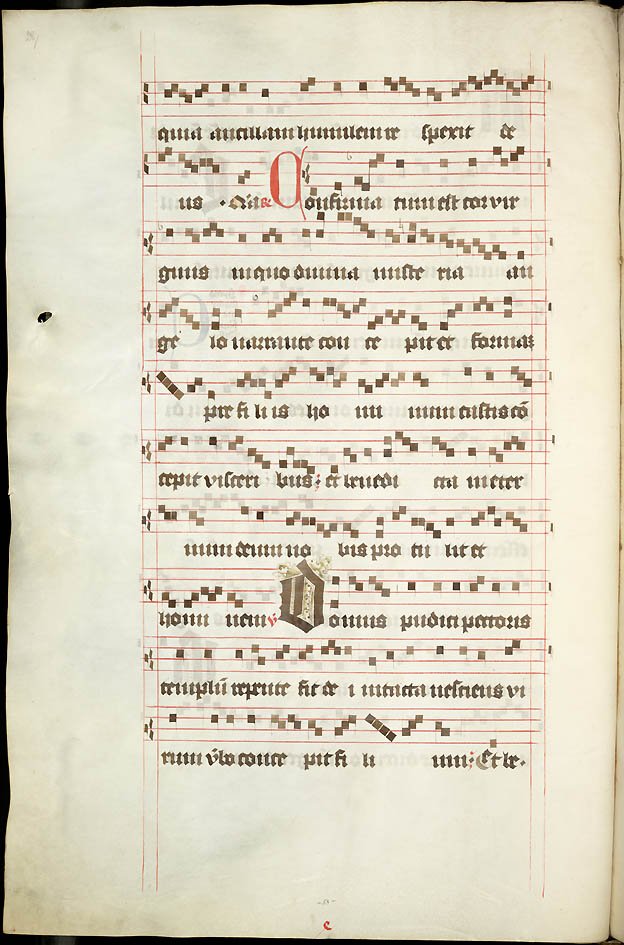 quia ancillam humilem re spexit de
us . Qui a R Confirma tum est cor vir
ginis in quo divina miste ria an
ge lo narrante con ce pit et formaz
pre fi li is ho mi num castis cō
cepit visceri bus : et benedi cta in eter
num deum no bis pro tu lit et
homi nem v Domus pudici pectoris
templū repente fit de i intacta nesciens vi
rum v̄bo conce pit fi li um : Et be.
-53-
c